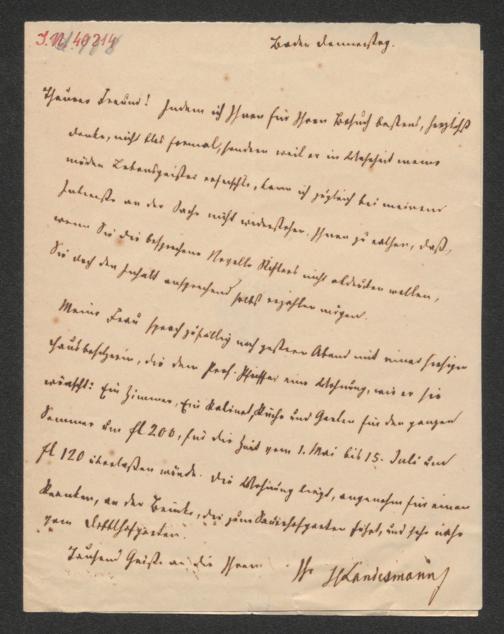 I.N. 40214
Baden Donnerstag.
Theurer Freund! Indem ich Ihnen für Ihren Besuch bestens, herzlichst
danke, nicht blos formal, sondern weil er in Wahrheit meine
müden Lebensgeister erfrischte, kann ich zugleich bei meinem
Interesse an der Sache nicht widerstehen, Ihnen zu rathen, daß,
wenn Sie die besprochene Novelle Richters nicht abdrucken wollen,
Sie doch den Inhalt entsprechend selbst erzählen mögen.
Meine Frau sprach zufällig noch gestern Abend mit einer hiesigen
Hausbesitzerin, die dem Prof. Pfeiffer eine Wohnung, wie er sie
wünscht: Ein Zimmer, Ein Kabinet, Küche und Garten für den ganzen
Sommer um fl 200, für die Zeit vom 1. Mai bis 15. Juli um
fl 120 überlaßen würde. Die Wohnung liegt, angenehm für einen
Kranken, an der Brücke, die zum führt, und sehr nahe
vom
Tausend Grüße an die Ihren
Ihr HLandesmann